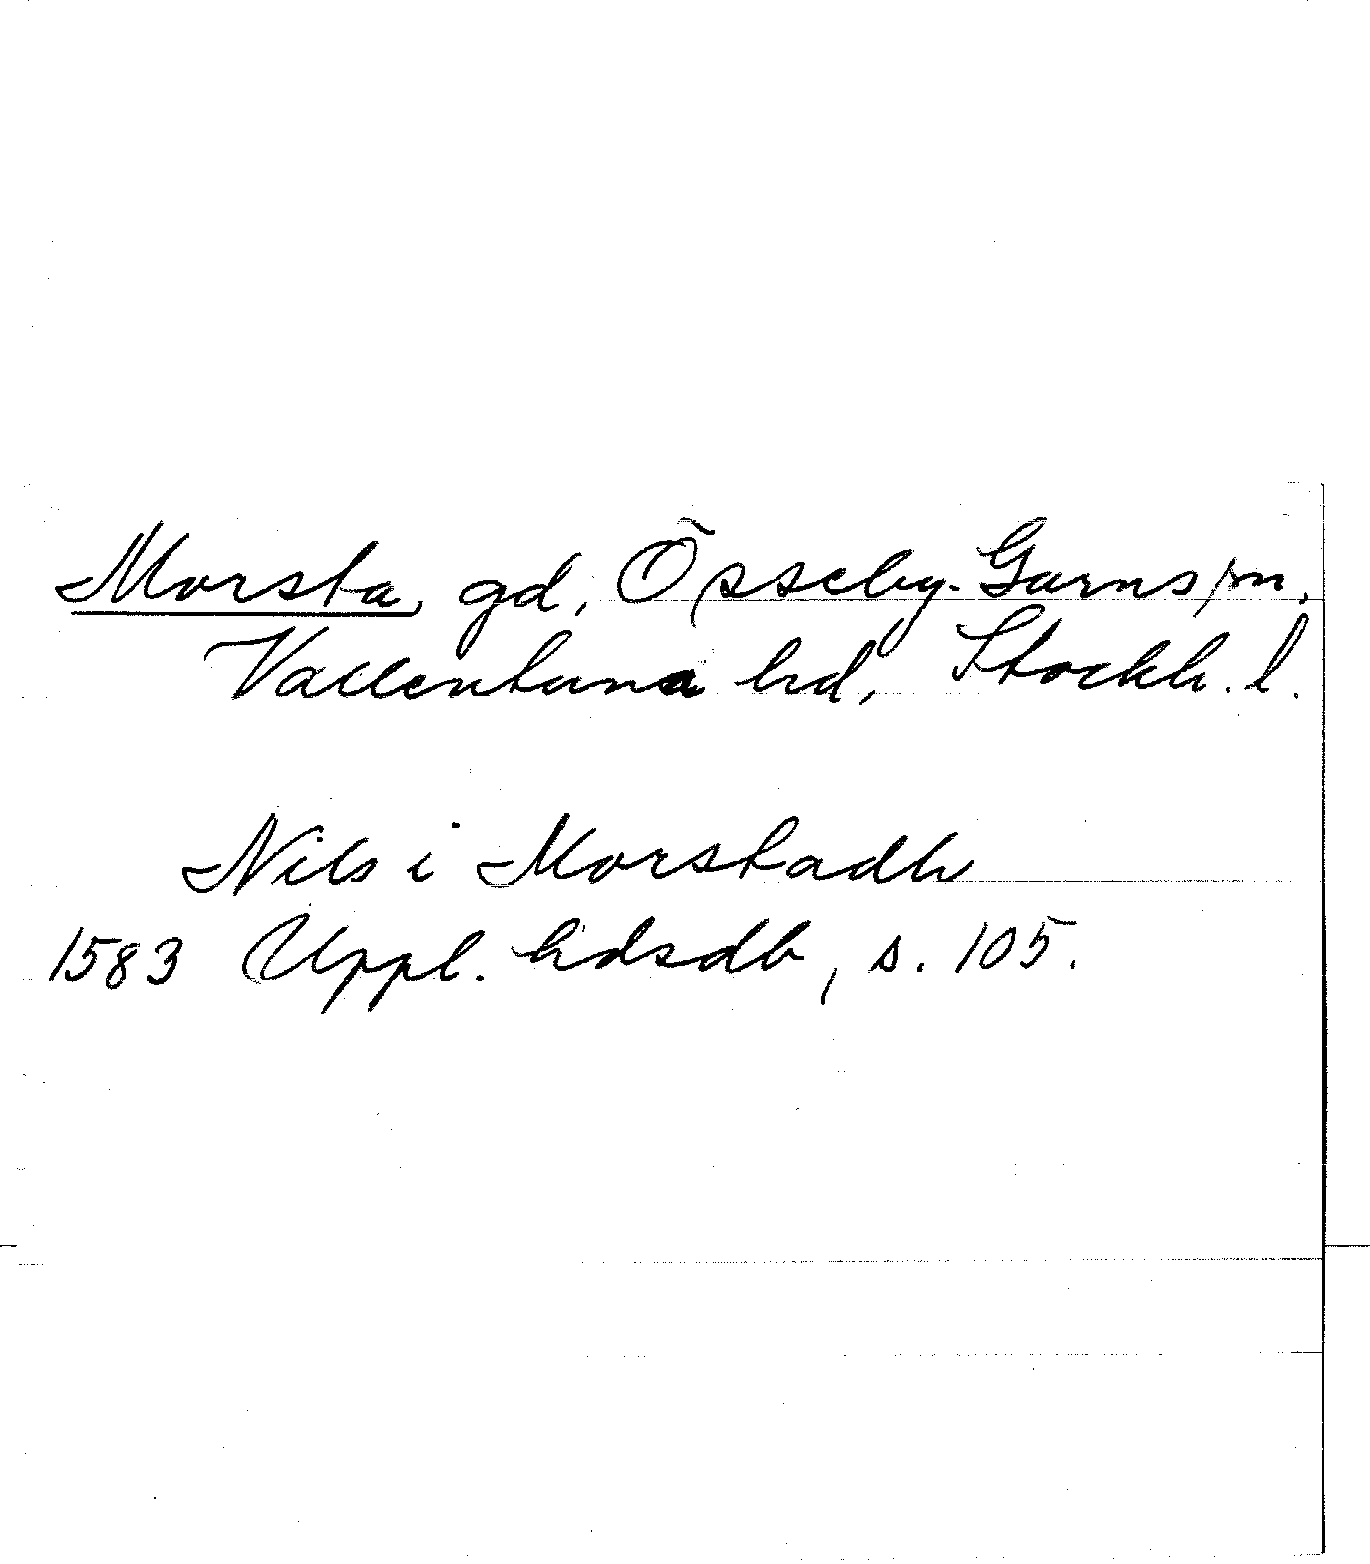 Morsta, gd, Össeby-Garns sn,
Vallentuna hd, Stockh. l.
Nils i Morstadh
1583 Uppl. hdsdb, s. 105.